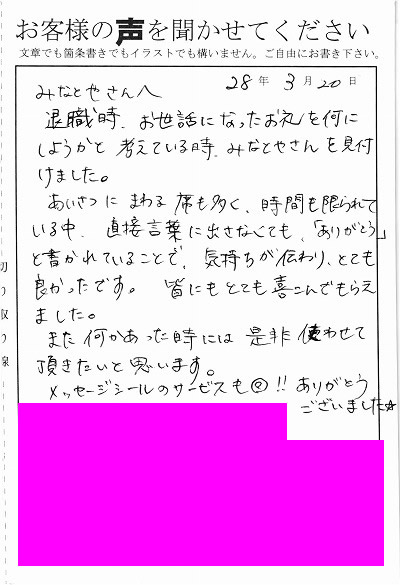 お客様の声を聞かせてください
文章でも箇条書きでもイラストでも構いません。ご自由にお書き下さい。
28年 3月 20日
みなとやさんへ
退職時、お世話になったお礼を何に
しようかと考えている時、みなとやさんを見付
けました。
あいさつにまわる席も多く、時間も限られて
いる中、直接言葉に出さなくても、「ありがとう」
と書かれていることで、気持ちが伝わり、とても
良かったです。皆にもとても喜こんでもらえ
ました。
また何かあった時には是非使わせて
頂きたいと思います。
メッセージシールのサービスも◎!!ありがとう
ございました☆
切り取り線